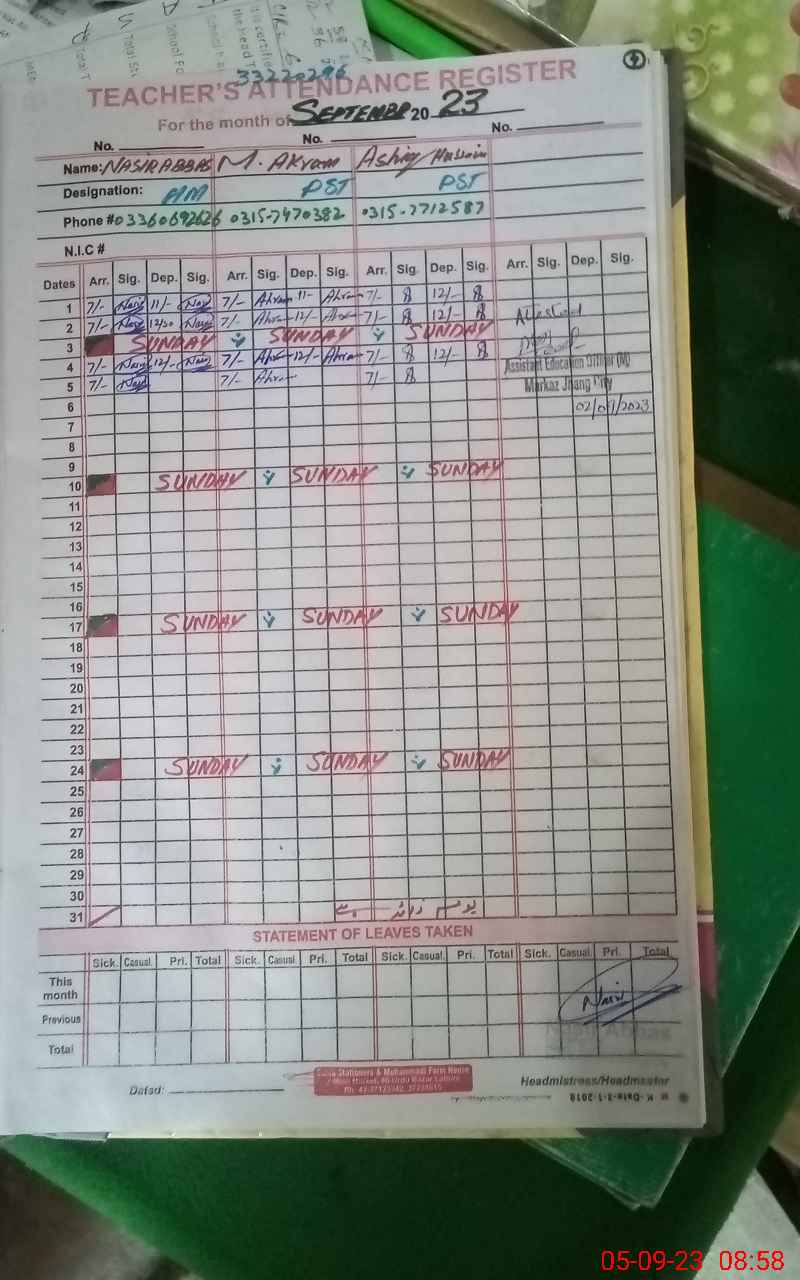 33220296
TEACHER'S ATTENDANCE REGISTER
For the month of SEPTEMBR 2023
No. No. No.
Name: NASIR ABBAS M. Akram Ashiq Hussain
Designation: HM PST PST
Phone # 03360692626 0315-7470382 0315-7712587
N.I.C #
Dates Arr. Sig. Dep. Sig. Arr. Sig. Dep. Sig. Arr. Sig. Dep. Sig. Arr. Sig. Dep. Sig.
1 7/- Nasir 11/- Nasir 7/- Akram 11- Akram 7/- 12/-
2 7/- Nasir 12/20 Nasir 7/- Akram 12/- Akram 7/- 12/- Attested
3 SUNDAY SUNDAY SUNDAY
4 7/- Nasir 12/- Nasir 7/- Akram 12/- Akram 7/- 12/- Assistant Education Officer (M)
5 7/- Nasir 7/- Akram 7/- Markaz Jhang City
6 02/09/2023
7
8
9
10 SUNDAY SUNDAY SUNDAY
11
12
13
14
15
16
17 SUNDAY SUNDAY SUNDAY
18
19
20
21
22
23
24 SUNDAY SUNDAY SUNDAY
25
26
27
28
29
30
31 یوم زائد ہے
STATEMENT OF LEAVES TAKEN
Sick. Casual. Pri. Total Sick. Casual. Pri. Total Sick. Casual. Pri. Total Sick. Casual. Pri. Total
This month
Previous Nasir
Total Nasir Abbas
Dated: Stationers & Muhammadi Form House Headmistress/Headmaster
05-09-23 08:58